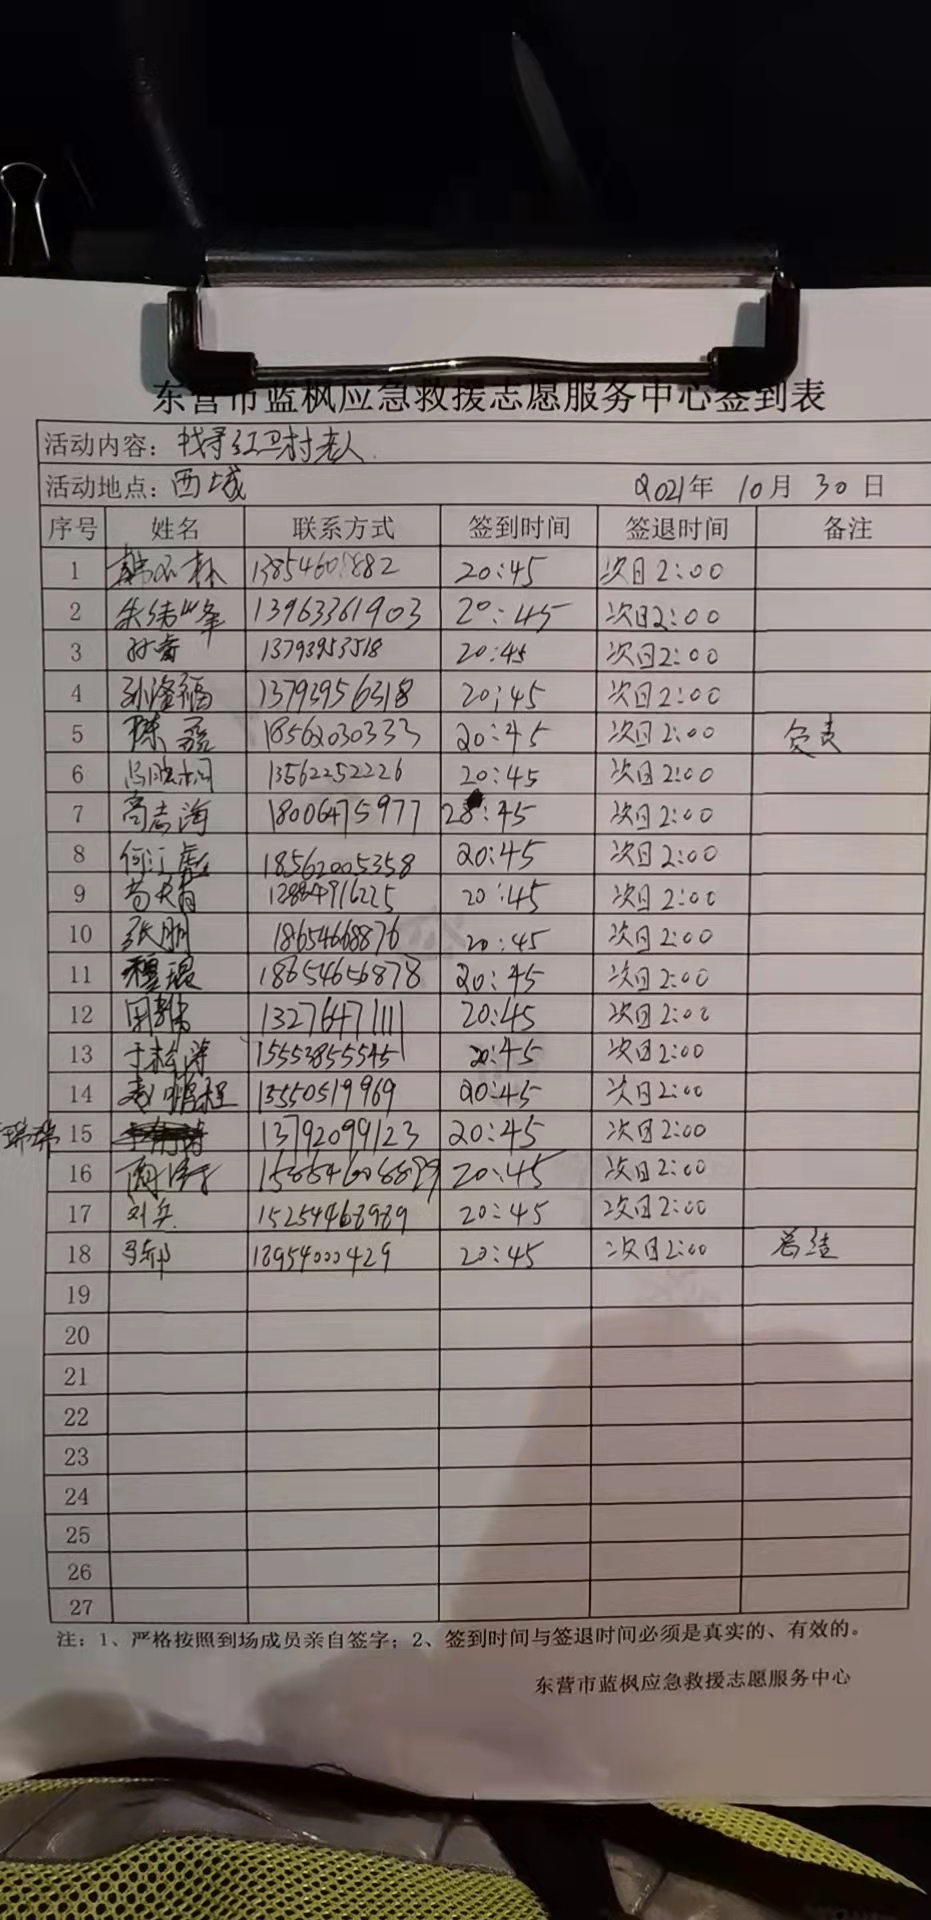 东营市蓝枫应急救援志愿服务中心签到表
活动内容：找寻红卫村老人
活动地点：西城 2021年 10月 30日
序号 姓名 联系方式 签到时间 签退时间 备注
1 13854608882 20:45 次日2:00
2 13963361903 20:45 次日2:00
3 孙睿 13793953518 20:45 次日2:00
4 孙隆福 13793956318 20:45 次日2:00
5 陈磊 18562030333 20:45 次日2:00 负责
6 13562252226 20:45 次日2:00
7 高志海 18006475977 20:45 次日2:00
8 何江彪 18562005358 20:45 次日2:00
9 20:45 次日2:00
10 张朋 18654668876 20:45 次日2:00
11 穆琨 18654656878 20:45 次日2:00
12 13276471111 20:45 次日2:00
13 于松涛 15553855545 20:45 次日2:00
14 赵鹏程 15550519969 20:45 次日2:00
15 13792099123 20:45 次日2:00
16 20:45 次日2:00
17 刘兵 15254468989 20:45 次日2:00
18 18954000429 20:45 次日2:00 总结
19
20
21
22
23
24
25
26
27
注：1、严格按照到场成员亲自签字；2、签到时间与签退时间必须是真实的、有效的。
东营市蓝枫应急救援志愿服务中心